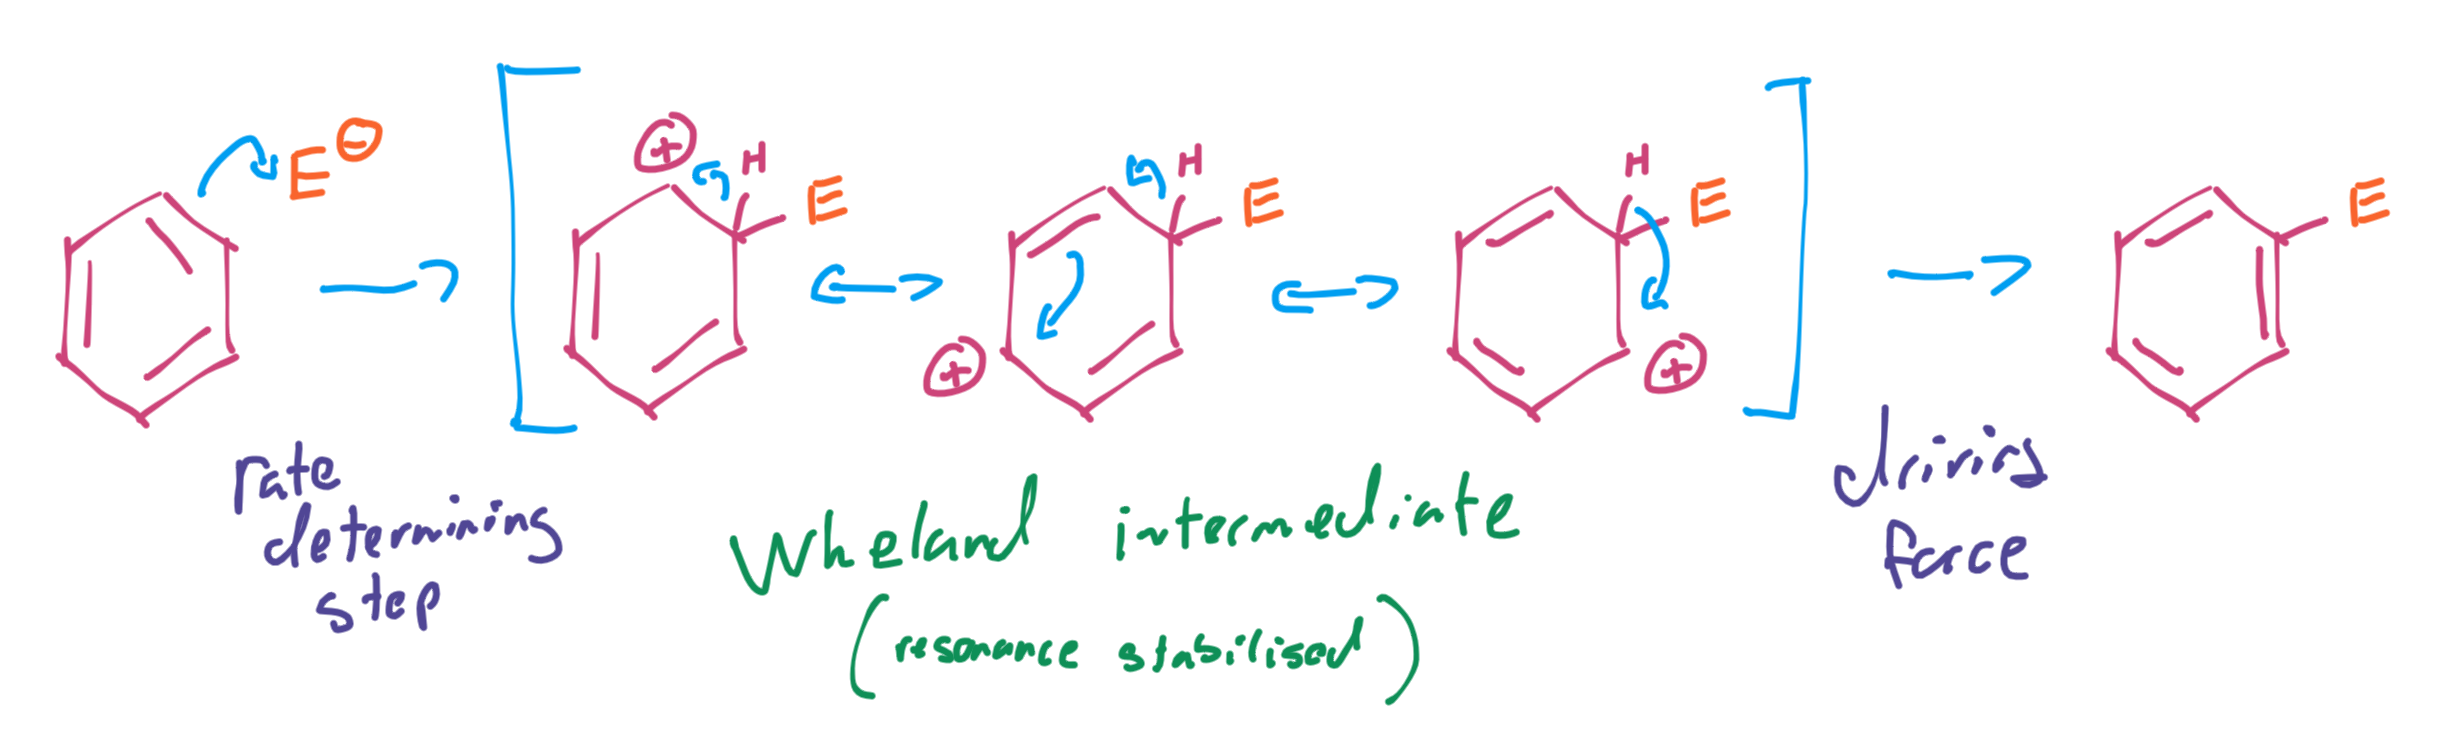 E ⊖
⊕ H E
H E
⊕
H E
⊕
E
rate
determining
step
Wheland intermediate
(resonance stabilised)
driving
force